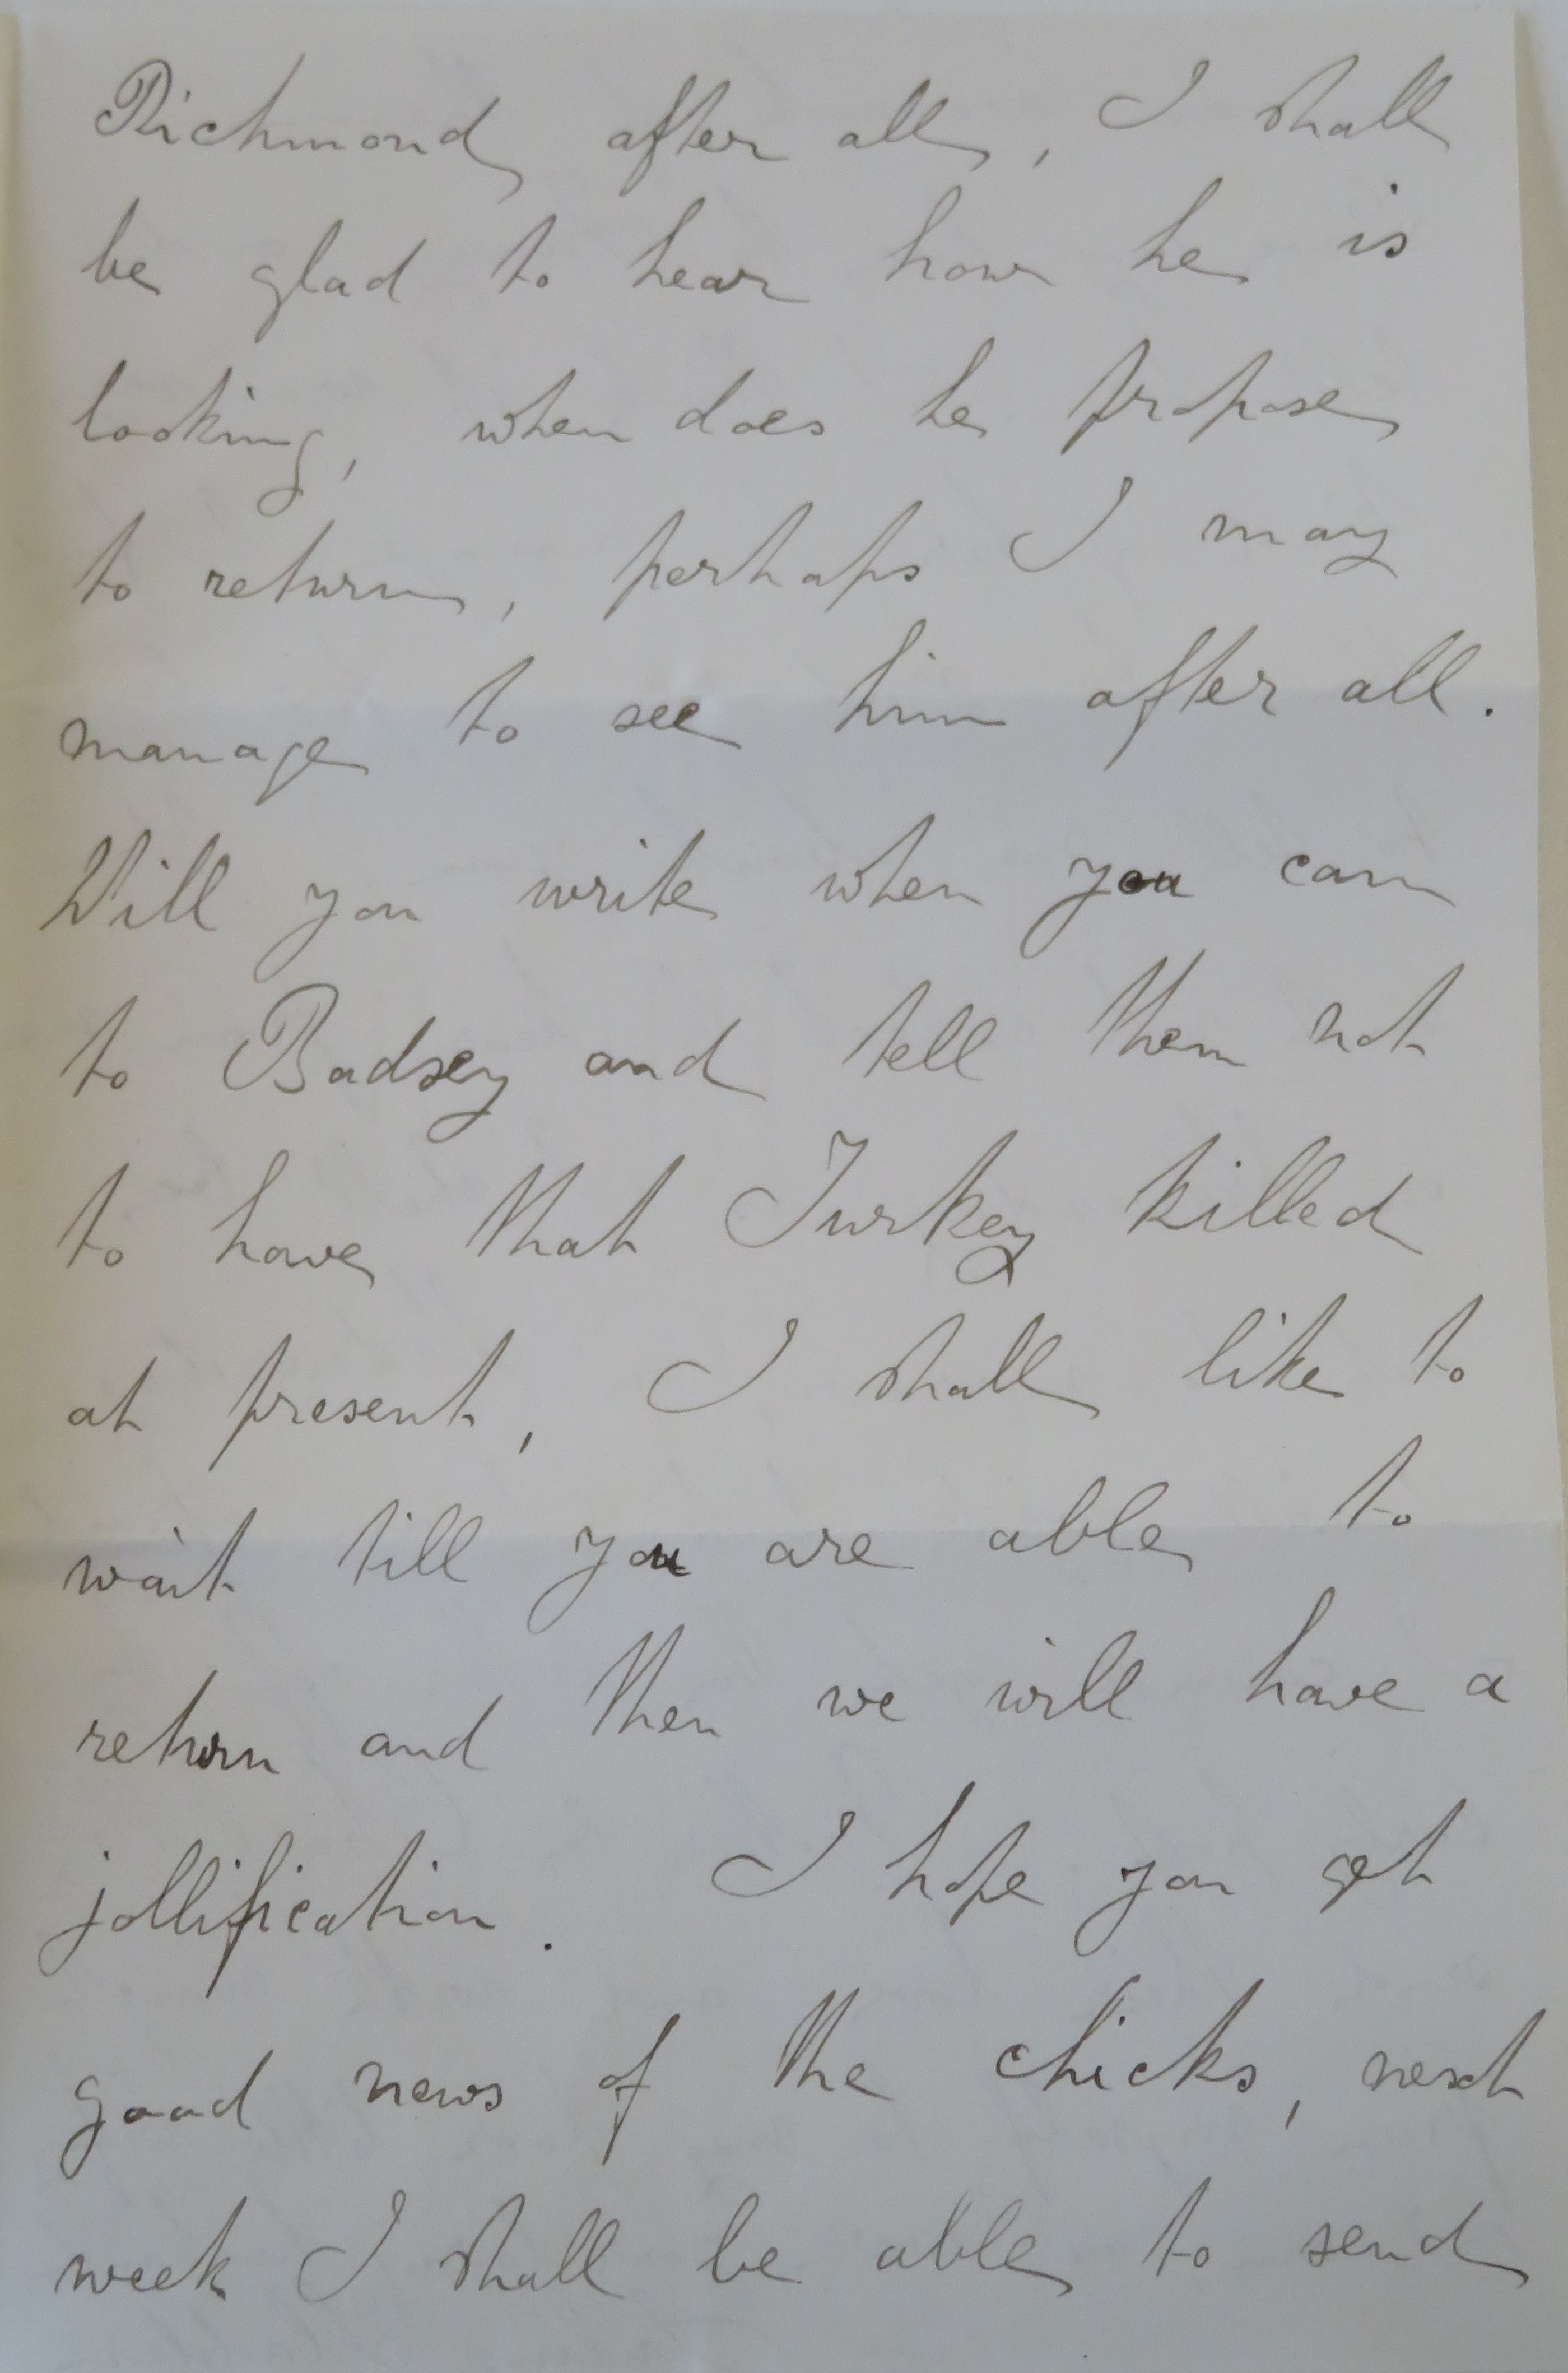 Richmond after all, I shall
be glad to hear how he is
looking, when does he propose
to return, perhaps I may
manage to see him after all.
Will you write when you can
to Badsey and tell them not
to have that Turkey killed
at present, I shall like to
wait till you are able to
return and then we will have a
jollification. I hope you get
good news of the chicks, next
week I shall be able to send